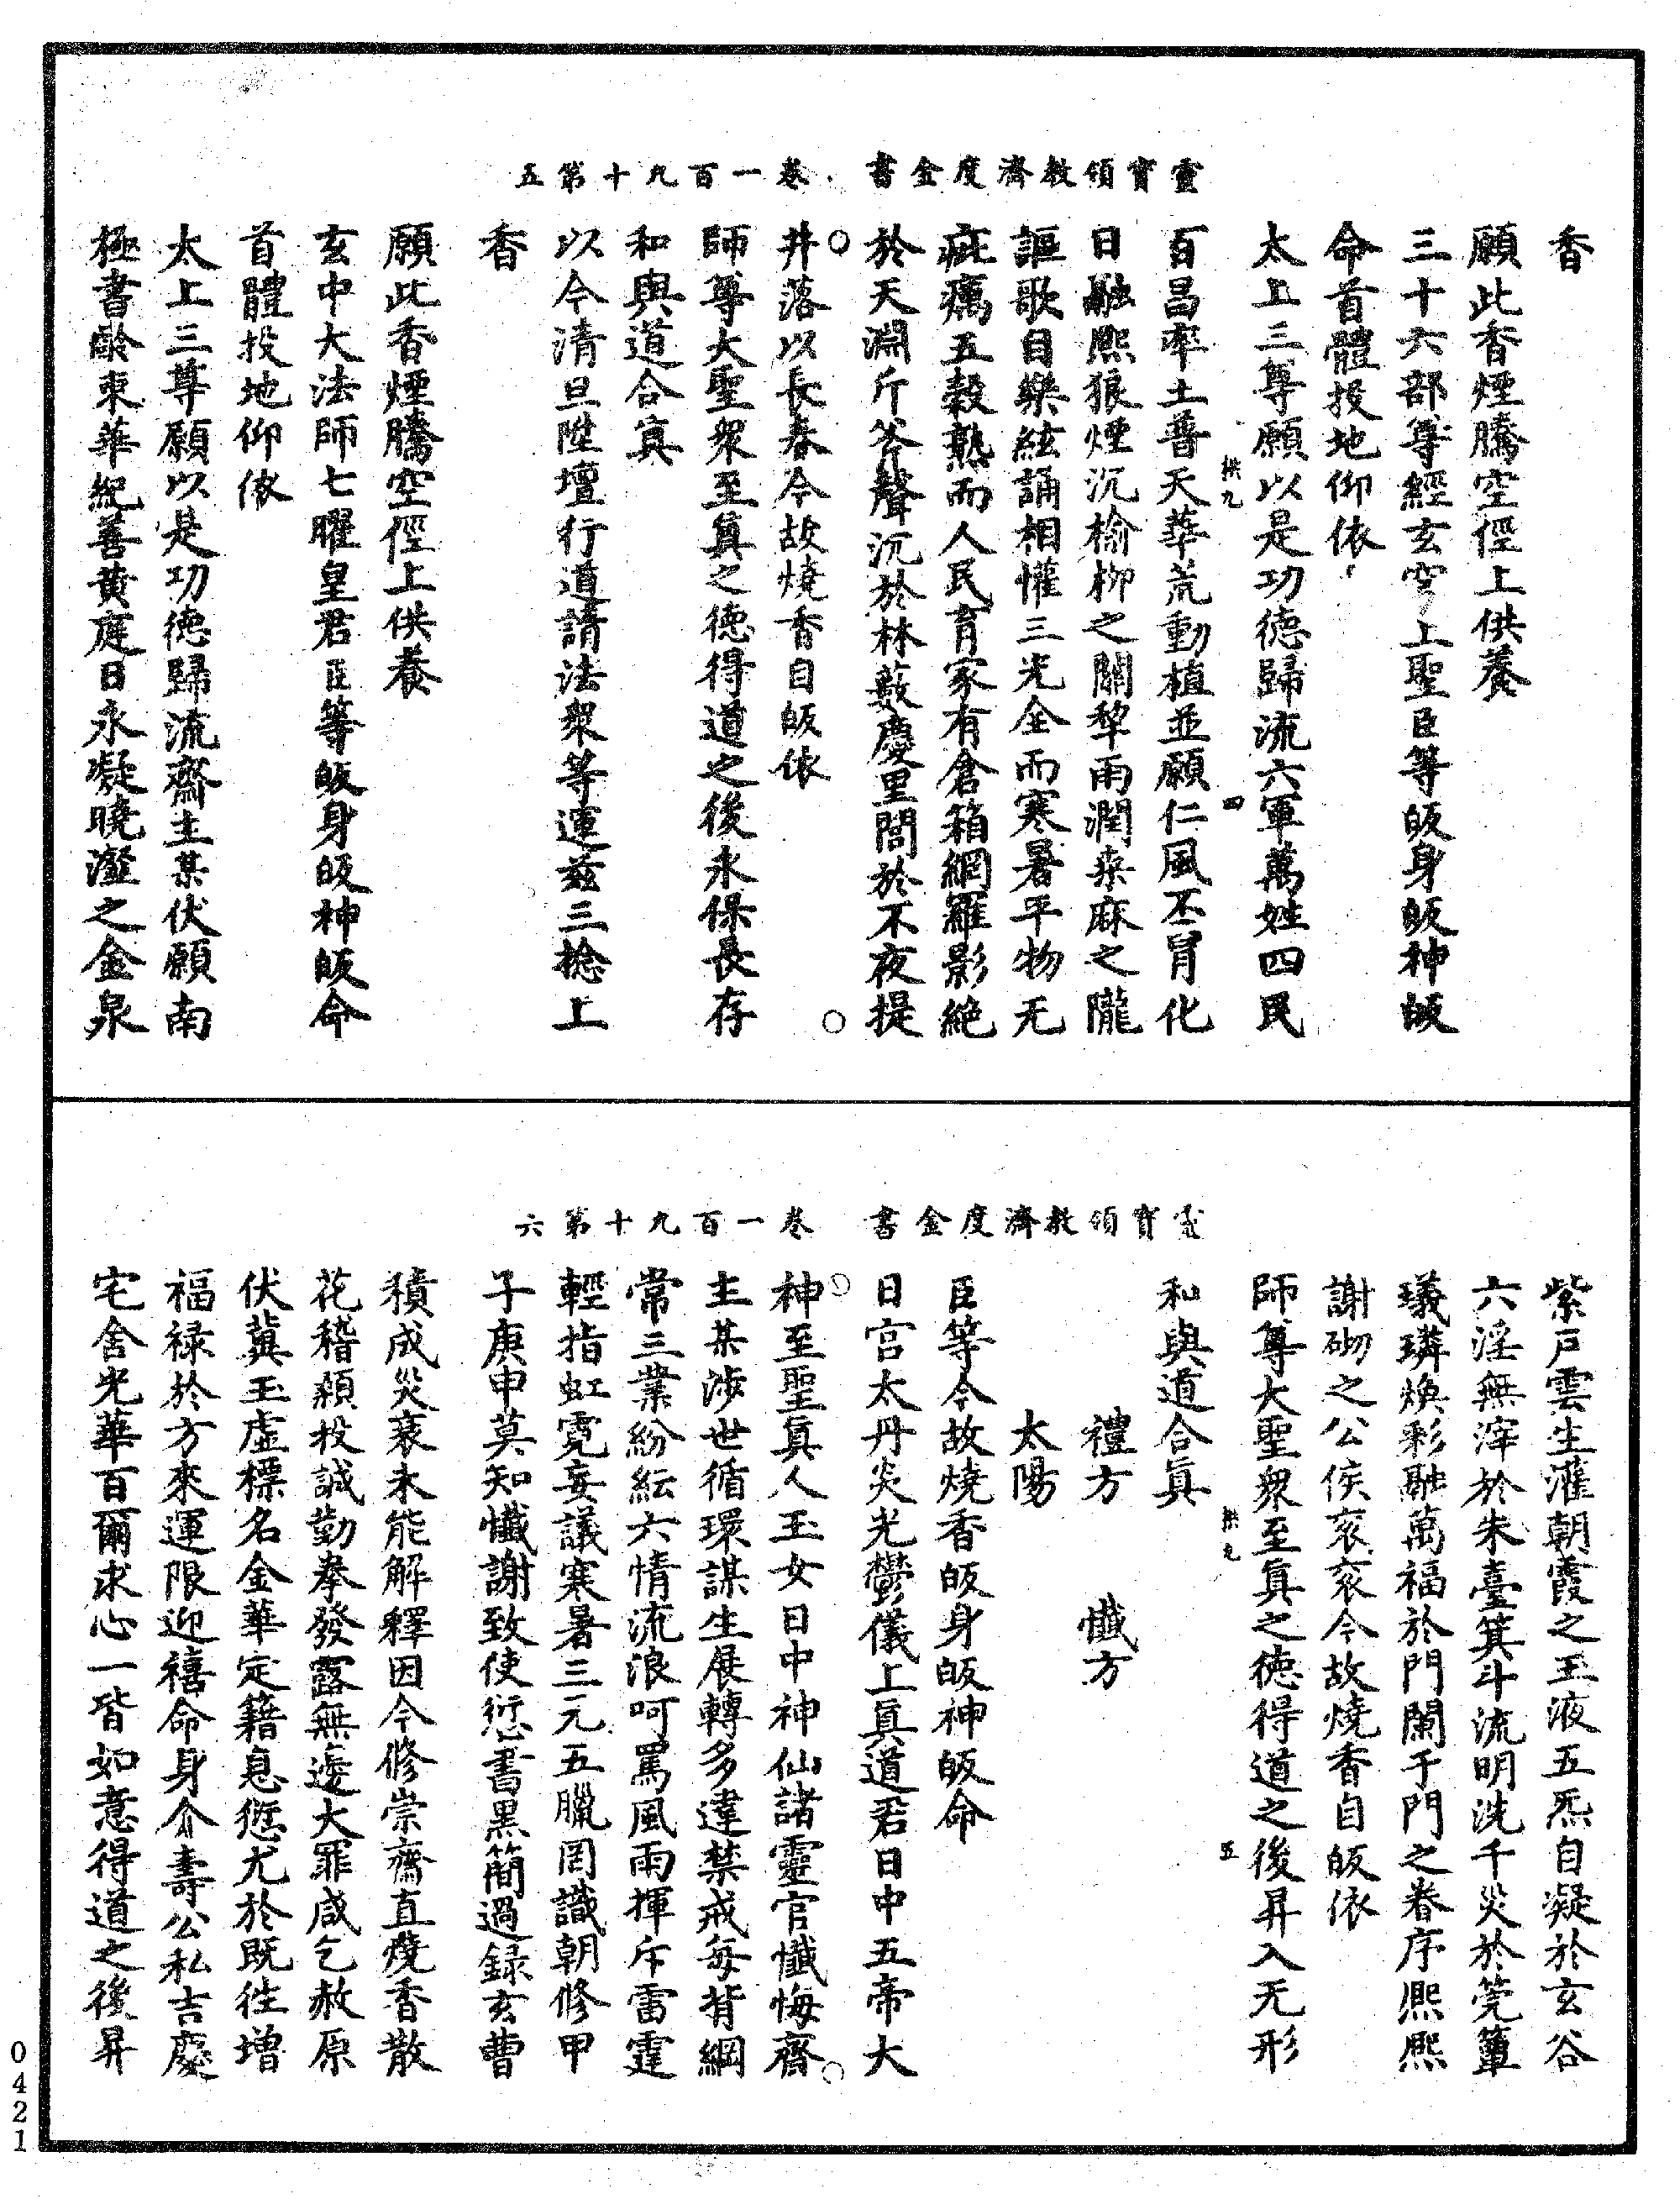 靈寶領教濟度金書 卷一百九十第五
香
願此香煙騰空徑上供養
三十六部尊經玄空上聖臣等皈身皈神皈
命首體投地仰依
太上三尊願以是功德歸流六軍萬姓四民
百昌率土普天華荒動植並願仁風丕冐化
日融熙狼煙沉榆栁之關犂雨潤桒麻之隴
謳歌自樂絃誦相懽三光全而寒暑平物无
疵癘五穀熟而人民育家有倉箱網羅影絶
於天淵斤斧聲沉於林藪慶里閭於不夜提
井落以長春今故燒香自皈依
師尊大聖衆至眞之德得道之後永保長存
和與道合眞
以今清旦陞壇行道請法衆等運兹三捻上
香
願此香煙騰空徑上供養
玄中大法師七曜皇君臣等皈身皈神皈命
首體投地仰依
太上三尊願以是功德歸流齋主某伏願南
極書齡東華紀善黄庭日永凝曉瀣之金泉
四
靈寶領教濟度金書 卷一百九十第六
紫戸雲生灌朝霞之玉液五炁自凝於玄谷
六淫無滓於朱臺箕斗流明洗千災於筦簟
璣璘煥彩融萬福於門闌于門之眷序熈熈
謝砌之公侯衮衮今故燒香自皈依
師尊大聖衆至眞之德得道之後昇入无形
和與道合眞
禮方 懺方
太陽
臣等今故燒香皈身皈神皈命
日宫太丹炎光鬱儀上眞道君日中五帝大
神至聖眞人玉女日中神仙諸靈官懺悔齋
主某渉世循環謀生展轉多違禁戒每背綱
常三業紛紜六情流浪呵罵風雨揮斥雷霆
輕指虹霓妄議寒暑三元五臘罔識朝修甲
子庚申莫知懺謝致使愆書黒簡過録玄曹
積成災衰未能解釋因今修崇齋直燒香散
花稽顙投誠勤拳發露無邊大罪咸乞赦原
伏冀玉虛標名金華定籍息愆尤於既徃增
福禄於方來運限迎禧命身介壽公私吉慶
宅舍光華百爾求心一皆如意得道之後昇
五
0421